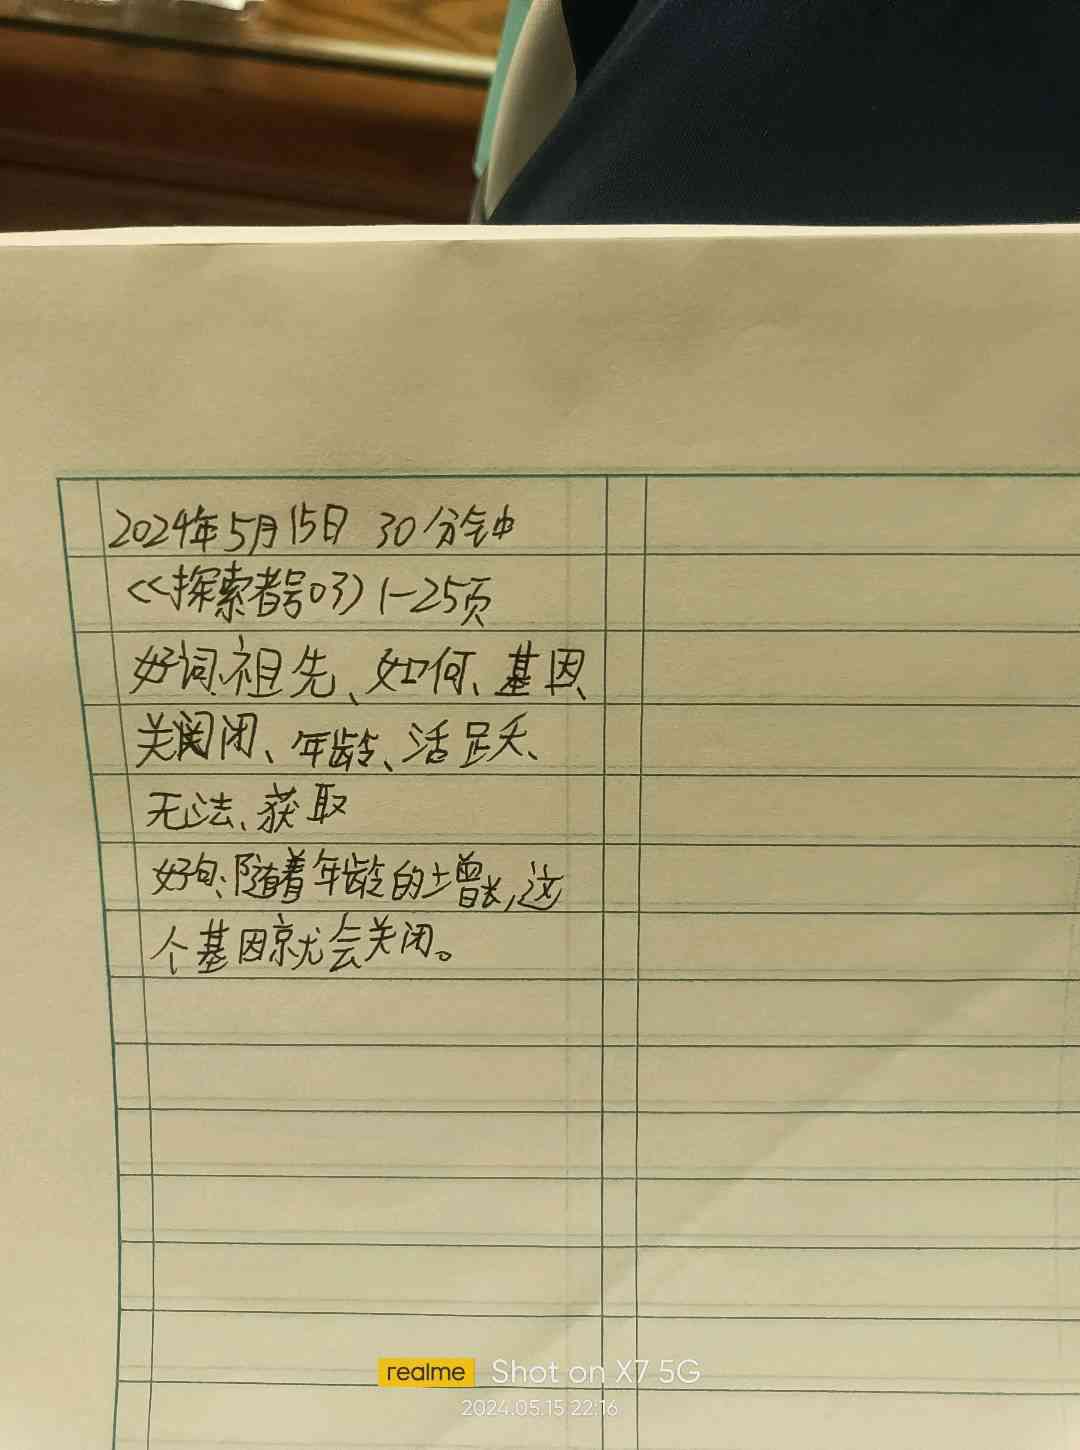 2024年5月15日 30分钟
<<探索者号03》1-25页
好词:祖先、如何、基因、
关闭、年龄、活跃、
无法、获取
好句:随着年龄的增长,这
个基因就会关闭。
realme Shot on X7 5G
2024.05.15 22:16